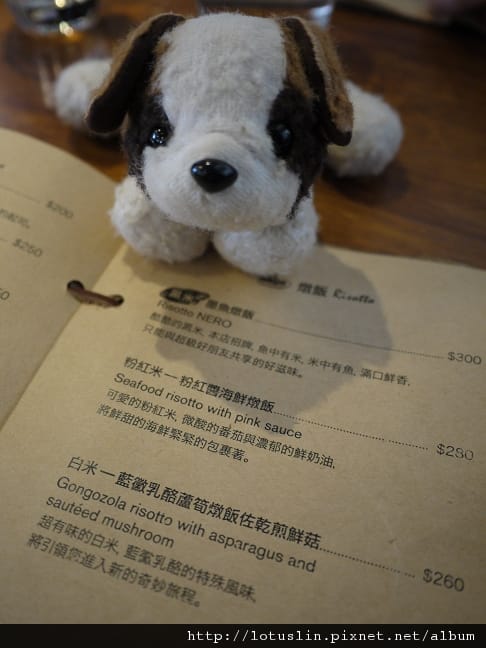 $200
的起司。
$250
50
燉飯 Risotto
墨魚燉飯
Risotto NERO $300
酷酷的黑米, 本店招牌, 魚中有米, 米中有魚, 滿口鮮香,
只能與超級好朋友共享的好滋味。
粉紅米一粉紅醬海鮮燉飯
Seafood risotto with pink sauce $280
可愛的粉紅米, 微酸的番茄與濃郁的鮮奶油,
將鮮甜的海鮮緊緊的包裹著。
白米一藍黴乳酪蘆筍燉飯佐乾煎鮮菇 $260
Gongozola risotto with asparagus and
sautéed mushroom
超有味的白米, 藍黴乳酪的特殊風味,
將引領您進入新的奇妙旅程。
http://lotuslin.pixnet.net/album